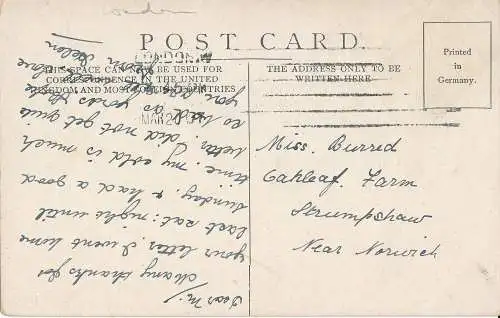 London
POST CARD.
THIS SPACE CAN NOW BE USED FOR
CORRESPONDENCE IN THE UNITED
KINGDOM AND MOST FOREIGN COUNTRIES
THE ADDRESS ONLY TO BE
WRITTEN HERE.
Printed
in
Germany.
LONDON
MAR 2
Miss. Burred
Oakleaf Farm
Strumpshaw
Near Norwich
Dear M;
Many thanks for
your letter. I went home
last sat: night until
Sunday. & had a good
time. my cold is much
better, did not get quite
so bad as yours.
you
love